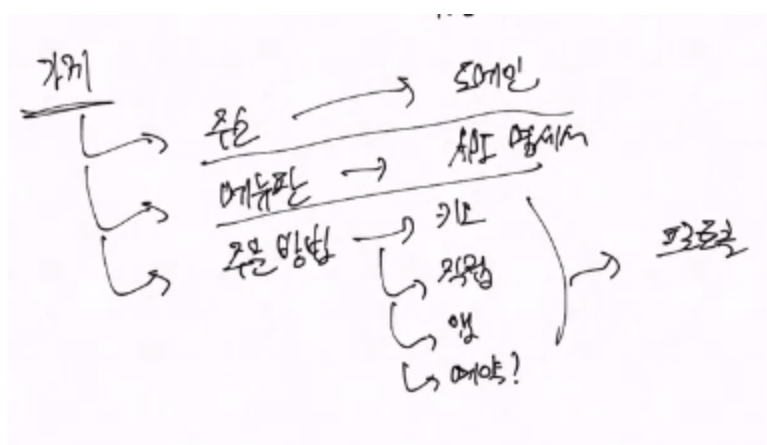 가게
주소 → 도메인
메뉴판 → API 명세서
주문 방법 → 키오
직접
앱
예약?
프로토콜